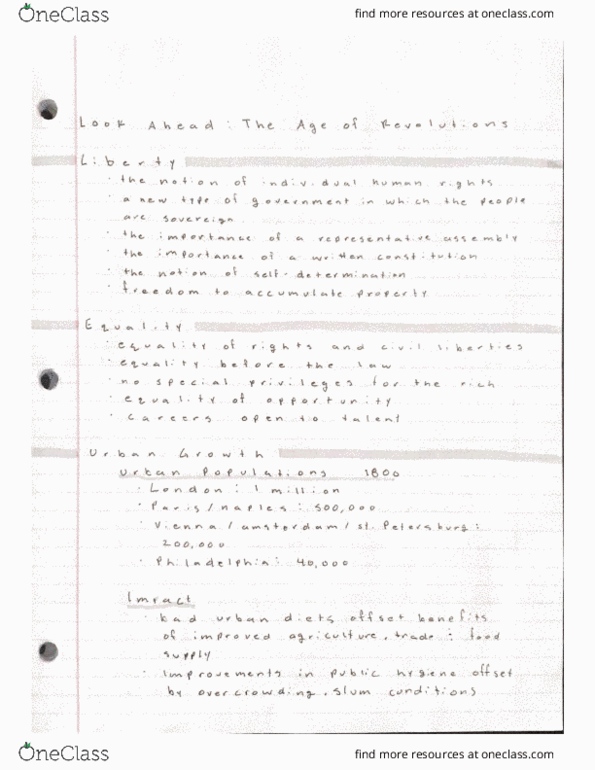 OneClass
find more resources at oneclass.com
Look Ahead: The Age of Revolutions
Liberty
· the notion of individual human rights
· a new type of government in which the people
are sovereign
· the importance of a representative assembly
· the importance of a written constitution
· the notion of self-determination
· freedom to accumulate property
Equality
· equality of rights and civil liberties
· equality before the law
· no special privileges for the rich
· equality of opportunity
· careers open to talent
Urban Growth
Urban Populations 1800
· London: 1 million
· Paris/naples: 500,000
· Vienna/amsterdam/st. Petersburg:
200,000
· Philadelphia: 40,000
Impact
· bad urban diets offset benefits
of improved agriculture, trade; food
supply
· Improvements in public hygiene offset
by overcrowding, slum conditions
OneClass
find more resources at oneclass.com